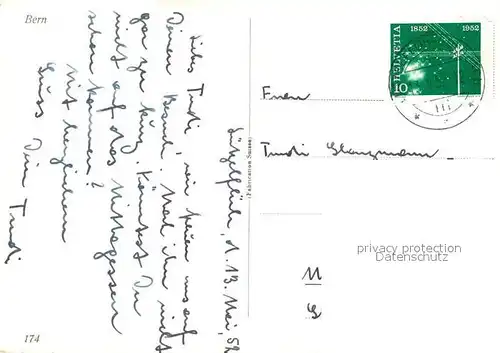 Bern
Lützelflüh, d. 13. Mai, 52
Liebes Trudi, wir freuen uns auf
Deinen Besuch. Mach ihn nicht
gar zu kurz. Könntest Du
nicht auf das Mittagessen
schon kommen?
Mit herzlichem
Gruss Dein Trudi
174
(Fabrication Suisse)
HELVETIA
1852 1952
10
III
Frau
Trudi Glanzmann
privacy protection
Datenschutz